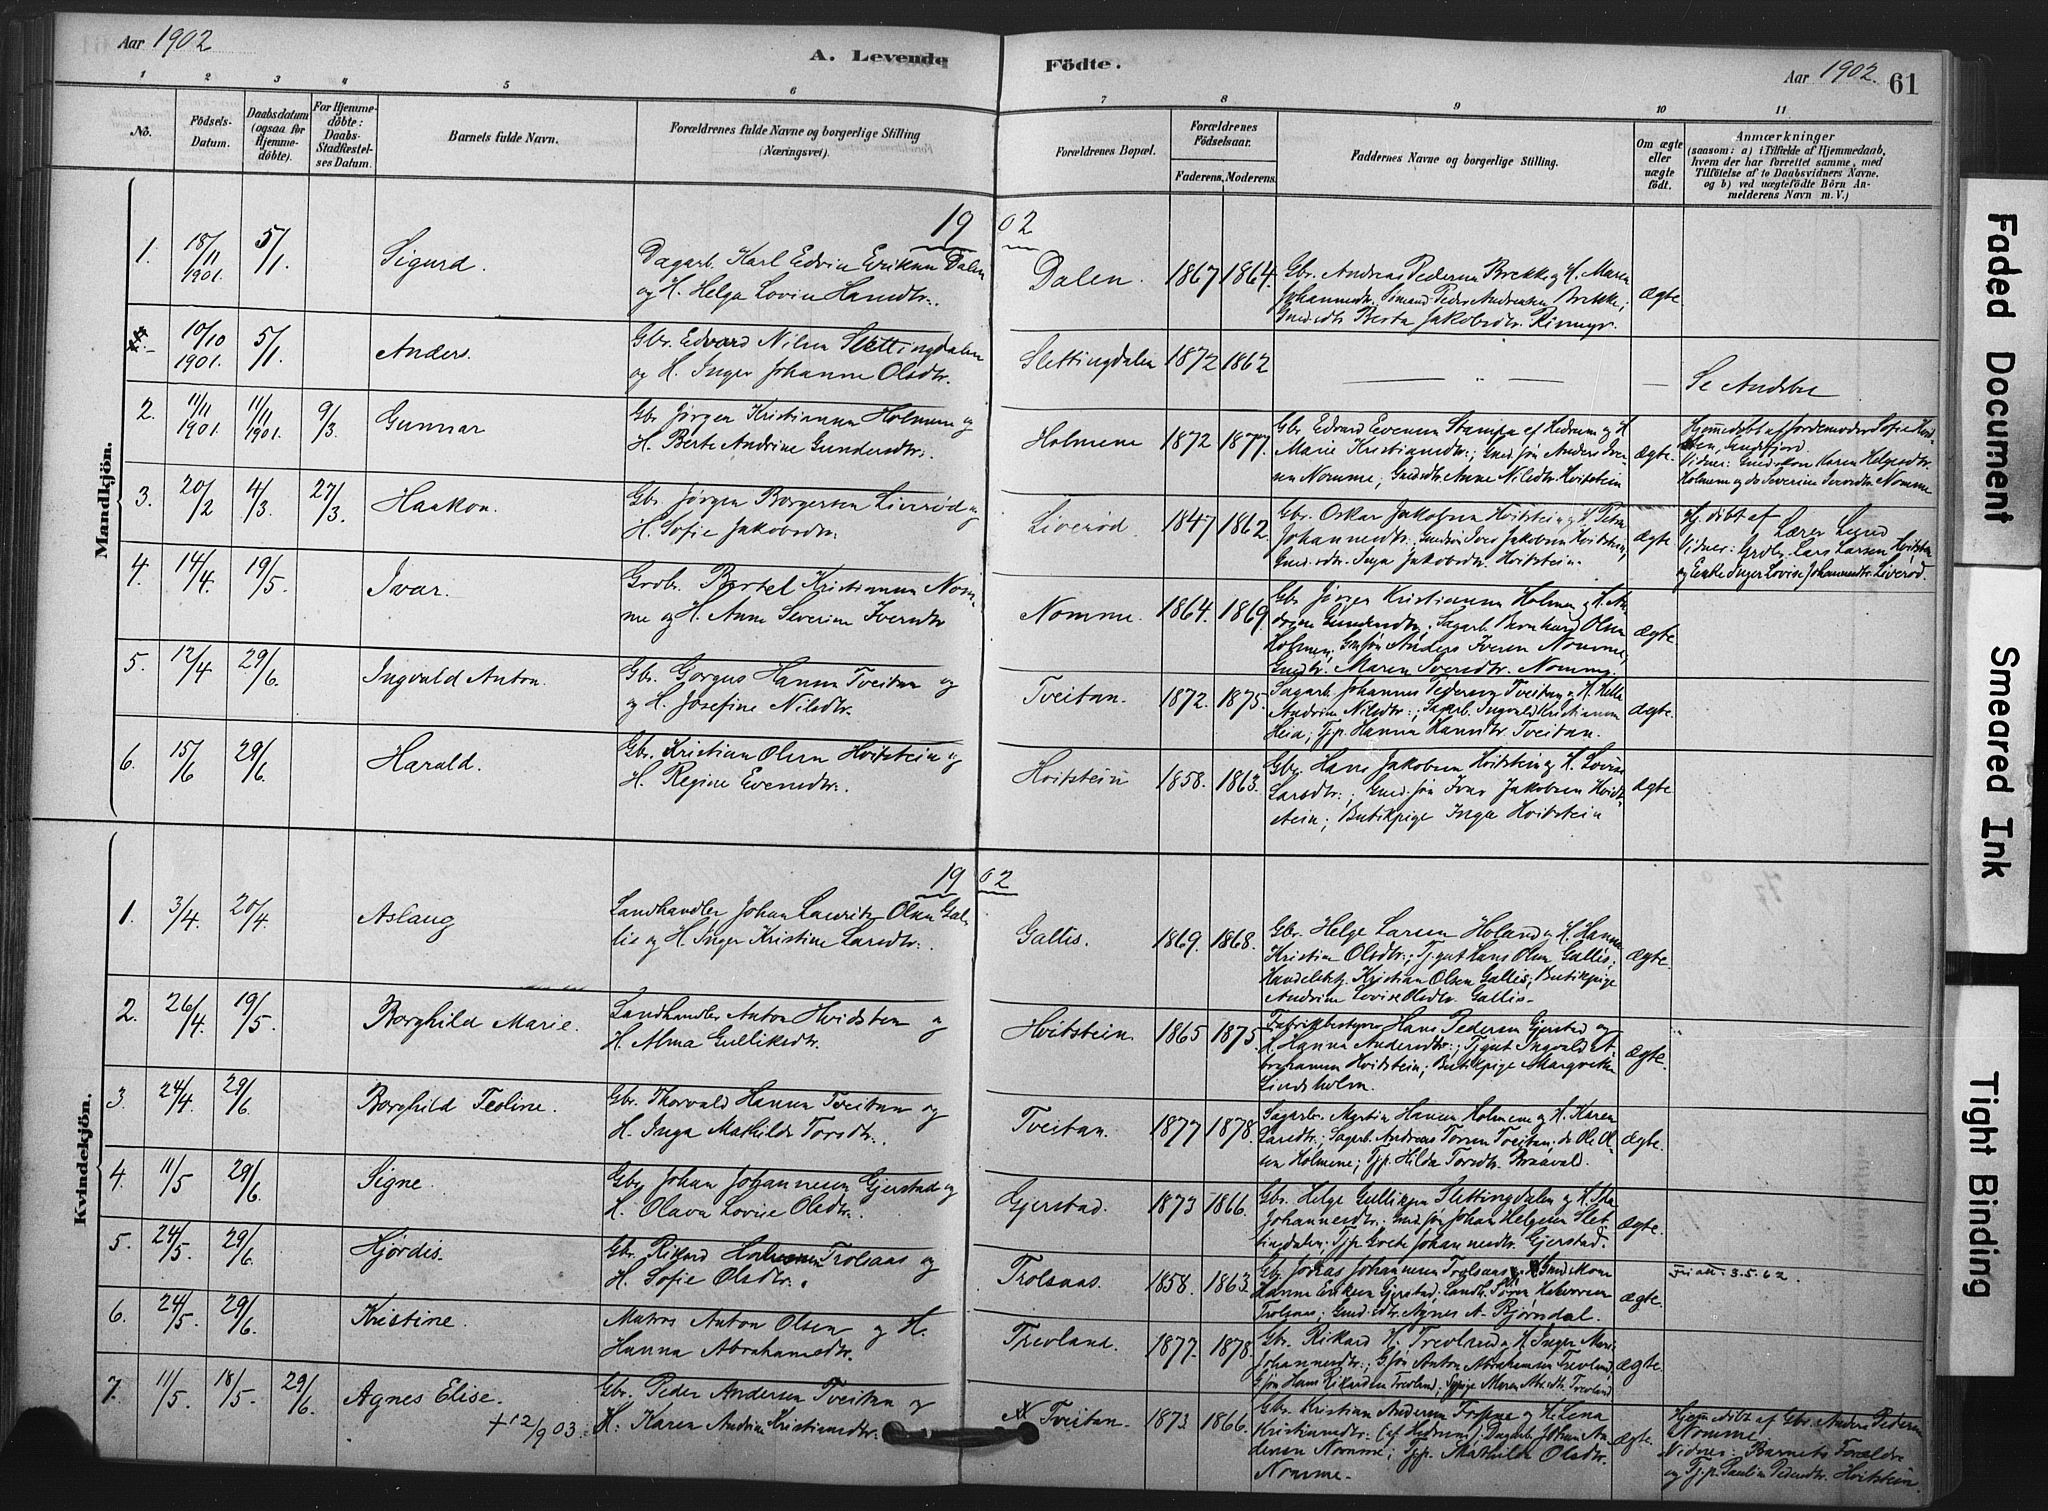 Aar 1902
A. Levende
Födte.
Aar 1902. 61
1 2 3 4 5 6 7 8 9 10 11
No.
Födsels-
Datum.
Daabsdatum
(ogsaa for
Hjemme-
döbte).
For Hjemme-
döbte:
Daabs-
Stadfæstel-
ses Datum.
Barnets fulde Navn.
Forældrenes fulde Navne og borgerlige Stilling
(Næringsvei).
Forældrenes Bopæl.
Forældrenes
Födselsaar.
Faderens. Moderens.
Faddernes Navne og borgerlige Stilling.
Om ægte
eller
uægte
födt.
Anmærkninger
(saasom: a) i Tilfælde af Hjemmedaab,
hvem der har forrettet samme, med
Tilföielse af to Daabsvidners Navne.
og b) ved uægtefödte Börn An-
melderens Navn m. V.)
Mandkjön.
19 02
1. 18/11 1901. 5/1. Sigurd.
Dagarb. Karl Edvin Eriksen Dalen
og H. Helga Lovise Hansdtr.
Dalen. 1867 1864.
Gbr. Andreas Pedersen Brekke og H. Maren
Johannesdtr. Sømand Peder Andreasen Brekke;
Gmdsdtr Berta Jakobsdtr.
Ægte.
10/10 1901. 5/1. Anders.
Gbr. Edvard Nilsen Slettingdalen
og H. Inger Johanne Olsdtr.
Slettingdalen 1872 1862
— „ — —
Se Andebu
2. 11/11 1901. 11/11 1901. 9/3. Gunnar
Gbr Jørgen Kristiansen Holmene og
H. Berte Andrine Gundersdtr.
Holmene 1872 1877.
Gbr Edvard Evensen Stampa af Hedrum og H.
Marie Kristiansdtr.; Gmd.søn Anders Iver-
sen Nomme; Gmdsdtr. Anne Nilsdtr. Hvitstein
Ægte.
Hjemmedøbt af Jordemoder Sofie
Sandefjord.
Vidner: Gmdskone Karen Helgesdtr.
Holmene og do Severine Iversdtr. Nomme
3. 20/2 4/3. 27/3. Haakon.
Gbr Jørgen Borgersen Liverød og
H. Sofie Jakobsdtr.
Liverød. 1847 1862.
Gbr. Oskar Jakobsen Hvitstein og H. Petra
Johannesdtr.; Gmdsøn Iver Jakobsen Hvitstein,
Gmd.sdtr. Inga Jakobsdtr. Hvitstein.
Ægte
Hj.døbt af Lærer
Vidner: Grdbr. Lars Larsen Hvitstein
og Enke Inger Lovise Johannesdtr. Liverød.
4. 14/4 19/5. Ivar.
Grdbr. Bertel Kristiansen Nom-
me og H. Anne Severine Iversdtr
Nomme. 1864. 1869.
Gbr Jørgen Kristiansen Holmen og H. An-
drine Gundersdtr; Sagarb. Bernhard Olsen
Holmen; Gmdsøn Anders Iversen Nomme,
Gmdsdtr. Maren Iversdtr. Nomme.
Ægte
5. 12/4 29/6. Ingvald Anton.
Gbr. Gorgus Hansen Tveitan og
og H. Josefine Nilsdtr.
Tveitan. 1872. 1875.
Sagarb. Johannes Pedersen Tveitan og H. Helle
Andrine Nilsdtr.; Sagarb. Ingvald Kristiansen
Heia; Tjp. Hanna Hansdtr. Tveitan.
Ægte.
6. 15/6 29/6. Harald.
Gbr. Kristian Olsen Hvitstein og
H. Regine Evensdtr.
Hvitstein 1858. 1863.
Gbr. Hans Jakobsen Hvitstein og H. Lovise
Larsdtr.; Gmd.søn Iver Jakobsen Hvidt-
stein; Butikpige Inga Hvitstein
Ægte
Kvindekjön.
19 02
1. 3/4. 20/4 Aslaug
Landhandler Johan Lauritz Olsen Gal-
lis og H. Inger Kristine Larsdtr.
Gallis. 1869. 1868.
Gbr. Helge Larsen Holand og H. Hanna
Kristine Olsdtr.; Tj.gut Hans Olsen Gallis;
Handelsbetj. Kristian Olsen Gallis; Butikpige
Andrine Lovise Olsdtr. Gallis.
Ægte.
2. 26/4 19/5. Borghild Marie.
Landhandler Anton Hvidsten og
H. Alma Gulliksdtr.
Hvitstein 1865 1875.
Fabrikbestyrer Hans Pedersen Gjerstad og
H. Hanna Andersdtr.; Tj.gut Ingvald A-
brahamsen Hvitstein; Butikpige Margrethe
Lindsholm.
Ægte.
3. 24/4. 29/6. Borghild Teoline.
Gbr. Thorvald Hansen Tveitan og
H. Inga Mathilde Torsdtr.
Tveitan. 1877 1878.
Sagarb. Martin Hansen Holmene og H. Karen
Larsdtr.; Sagarb. Andreas Torsen Tveitan; do Ole Ol-
sen Holmene; Tjp. Hilda Torsdtr. Braavald.
Ægte.
4. 11/5 29/6. Signe.
Gbr Johan Johannesen Gjerstad og
H. Olava Lovise Olsdtr.
Gjerstad. 1873 1866.
Gbr. Helge Gulliksen Slettingdalen og H.
Johannesdtr.; Gmd.søn Johan Helgesen Slet-
tingdalen; Tjp. Grete Johannesdtr. Gjerstad.
Ægte.
5. 24/5. 29/6. Hjørdis.
Gbr. Rikard Trolsaas og
H. Sofie Olsdtr.
Trolsaas. 1858. 1863.
Gbr. Johannesen Trolsaas; Gmdskone
Hanne Eriksen Gjerstad; Landh. Søren Halvorsen
Trolsaas; Gmd.sdtr. Agnes A. Bjørndal.
Ægte.
Fri att. 3.5.62.
6. 24/5. 29/6. Kristine.
Matros Anton Olsen og H.
Hanna Abrahamsdtr.
Trevland. 1877. 1878.
Gbr. Rikard H. Trevland og H. Inger Marie
Johannesdtr.; G.søn Anton Abrahamsen Trevland;
G.søn Hans Rikardsen Trevland; Maren Trevland
Ægte.
7. 11/5. 18/5. 29/6. Agnes Elise.
+ 12/9 03.
Gbr. Peder Andersen Tveitan og
H. Karen Andrine Kristiansdtr.
Tveitan. 1873. 1866.
Gbr. Kristian Andersen og H. Lena
Kristiansdtr. (af Hedrum); Dagarb. Johan An-
dersen Nomme; Tjp. Mathilde Olsdtr.
Nomme.
Ægte.
Hjemmedøbt af Gbr. Anders Pedersen
Nomme
Vidner: Barnets Forældre
og Tj.p. Pauline Pedersdtr. Hvitstein.
Faded Document
Smeared Ink
Tight Binding